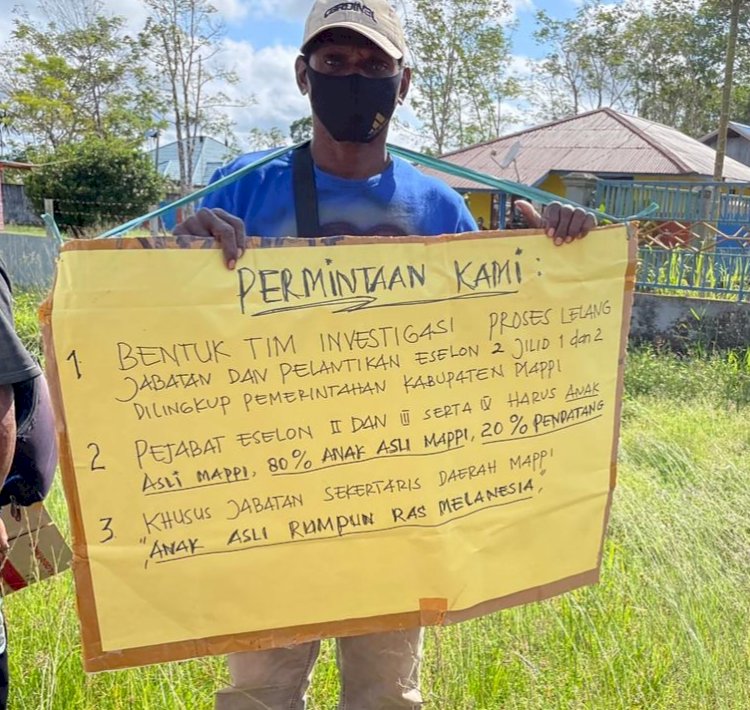 CARDINAL
adidas
PERMINTAAN KAMI :
1 BENTUK TIM INVESTIGASI PROSES LELANG
JABATAN DAN PELANTIKAN ESELON 2 JILID 1 dan 2
DILINGKUP PEMERINTAHAN KABUPATEN MAPPI
2 PEJABAT ESELON II DAN III SERTA IV HARUS ANAK
ASLI MAPPI, 80% ANAK ASLI MAPPI, 20% PENDATANG
3 KHUSUS JABATAN SEKERTARIS DAERAH MAPPI
"ANAK ASLI RUMPUN RAS MELANESIA"